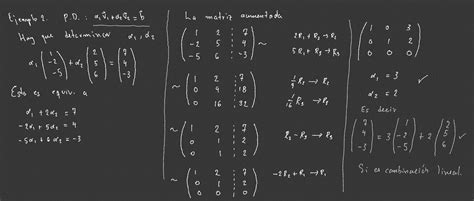 Ejemplo 2. P.D.: α₁v̄₁+α₂v̄₂=b̄
Hay que determinar α₁, α₂
α₁ (1 -2 -5) + α₂ (2 5 6) = (7 4 -3)
Esto es equiv. a
α₁ + 2α₂ = 7
-2α₁ + 5α₂ = 4
-5α₁ + 6α₂ = -3
La matriz aumentada
( 1 2 | 7
-2 5 | 4
-5 6 | -3 )
2R₁ + R₂ → R₂
5R₁ + R₃ → R₃
~ ( 1 2 | 7
0 9 | 18
0 16 | 32 )
1/9 R₂ → R₂
1/16 R₃ → R₃
~ ( 1 2 | 7
0 1 | 2
0 1 | 2 )
R₂ - R₃ → R₃
~ ( 1 2 | 7
0 1 | 2
0 0 | 0 )
-2R₂ + R₁ → R₁
~ ( 1 0 | 3
0 1 | 2
0 0 | 0 )
α₁ = 3 ✓
α₂ = 2
Es decir
(7 4 -3) = 3 (1 -2 -5) + 2 (2 5 6) ✓
Si es combinación lineal.